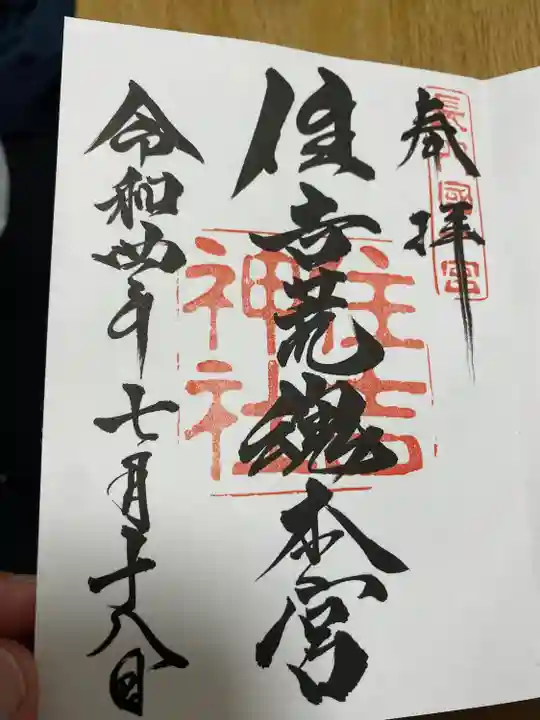 奉拝
長門國一宮
住吉荒魂本宮
住吉
神社
令和四年七月十八日